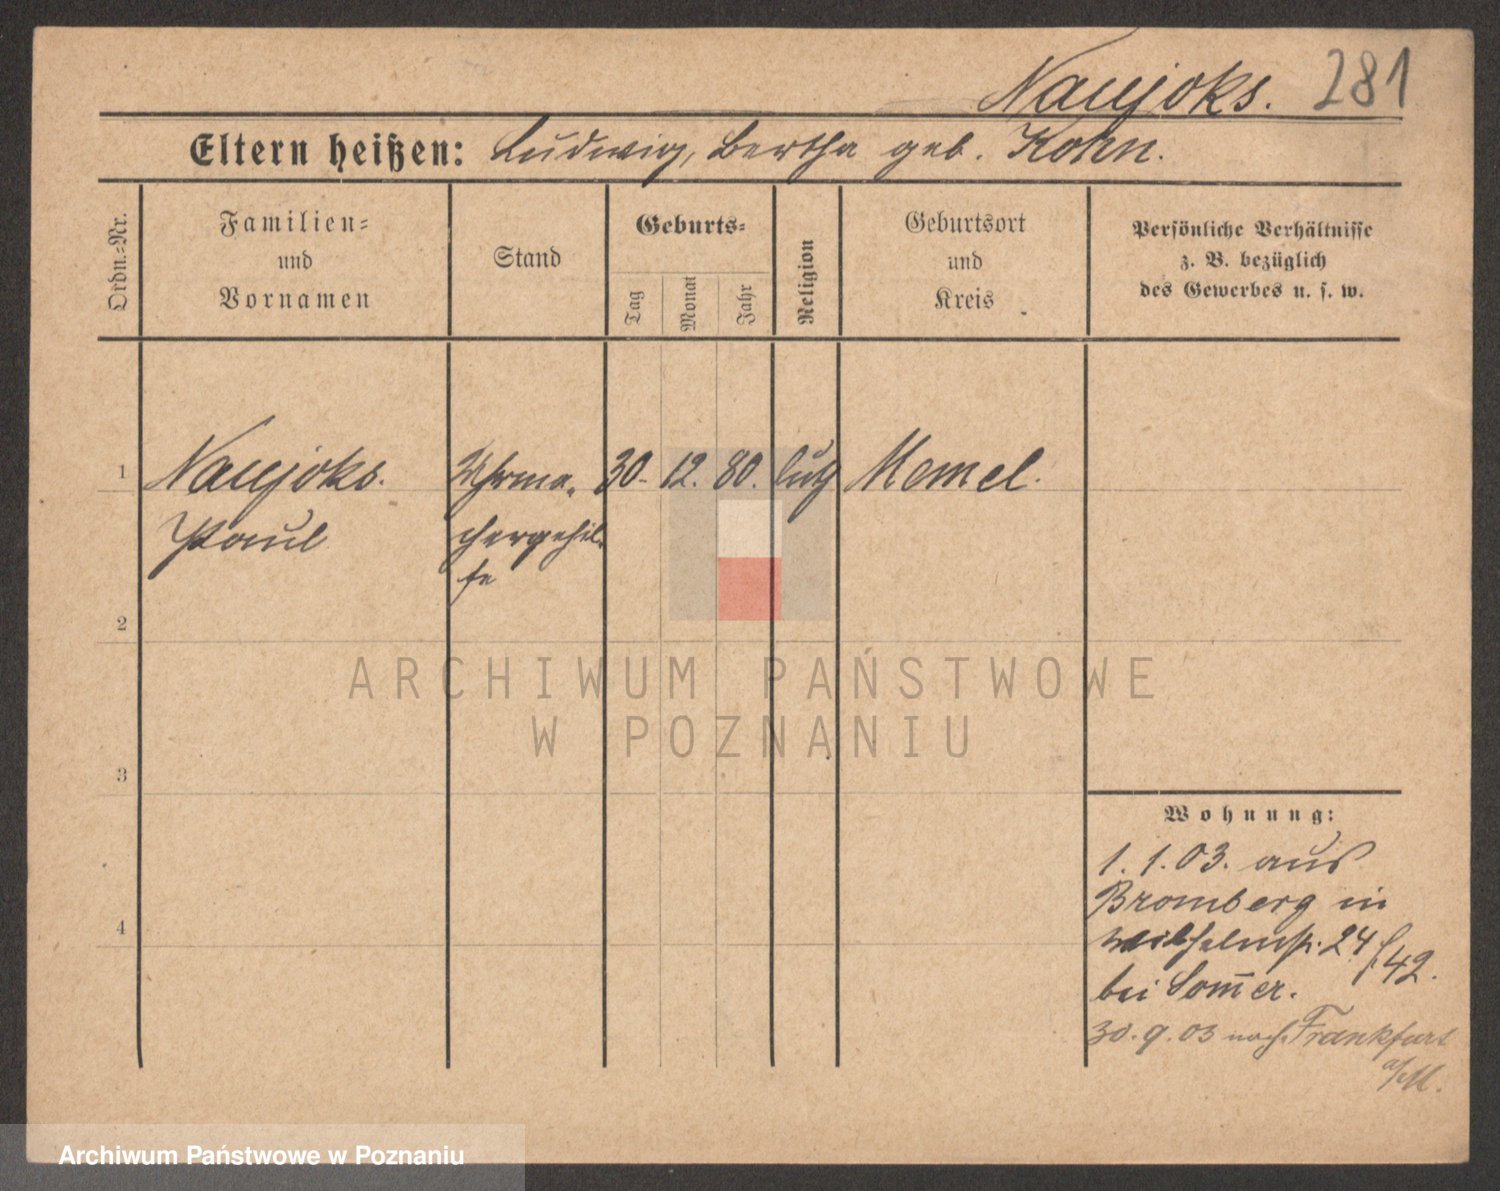 Naujoks. 281
Eltern heißen: Ludwig, Bertha geb. Kohn.
Ordn.-Nr.
Familien-
und
Vornamen
Stand
Geburts-
Tag
Monat
Jahr
Religion
Geburtsort
und
Kreis
Persönliche Verhältnisse
z. B. bezüglich
des Gewerbes u. s. w.
1 Naujoks. Uhrma- 30. 12. 80. luth Memel.
Paul chergehil-
fe
2
ARCHIWUM PAŃSTWOWE
W POZNANIU
3
Wohnung:
1. 1. 03. aus
Bromberg in
Wilhelmstr. 24/42.
bei Som̄er.
30. 9. 03 nach Frankfurt
a/M.
4
Archiwum Państwowe w Poznaniu